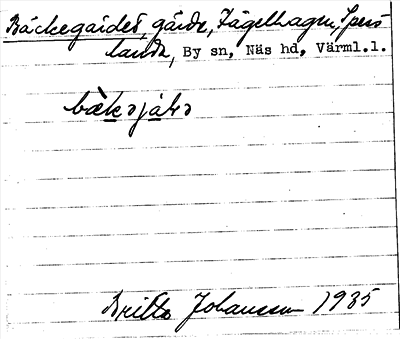 Bäckegärdet, gärde, Fågelhagen, Spers
lands, By sn, Näs hd, Värml.l.
Britta Johansson 1935